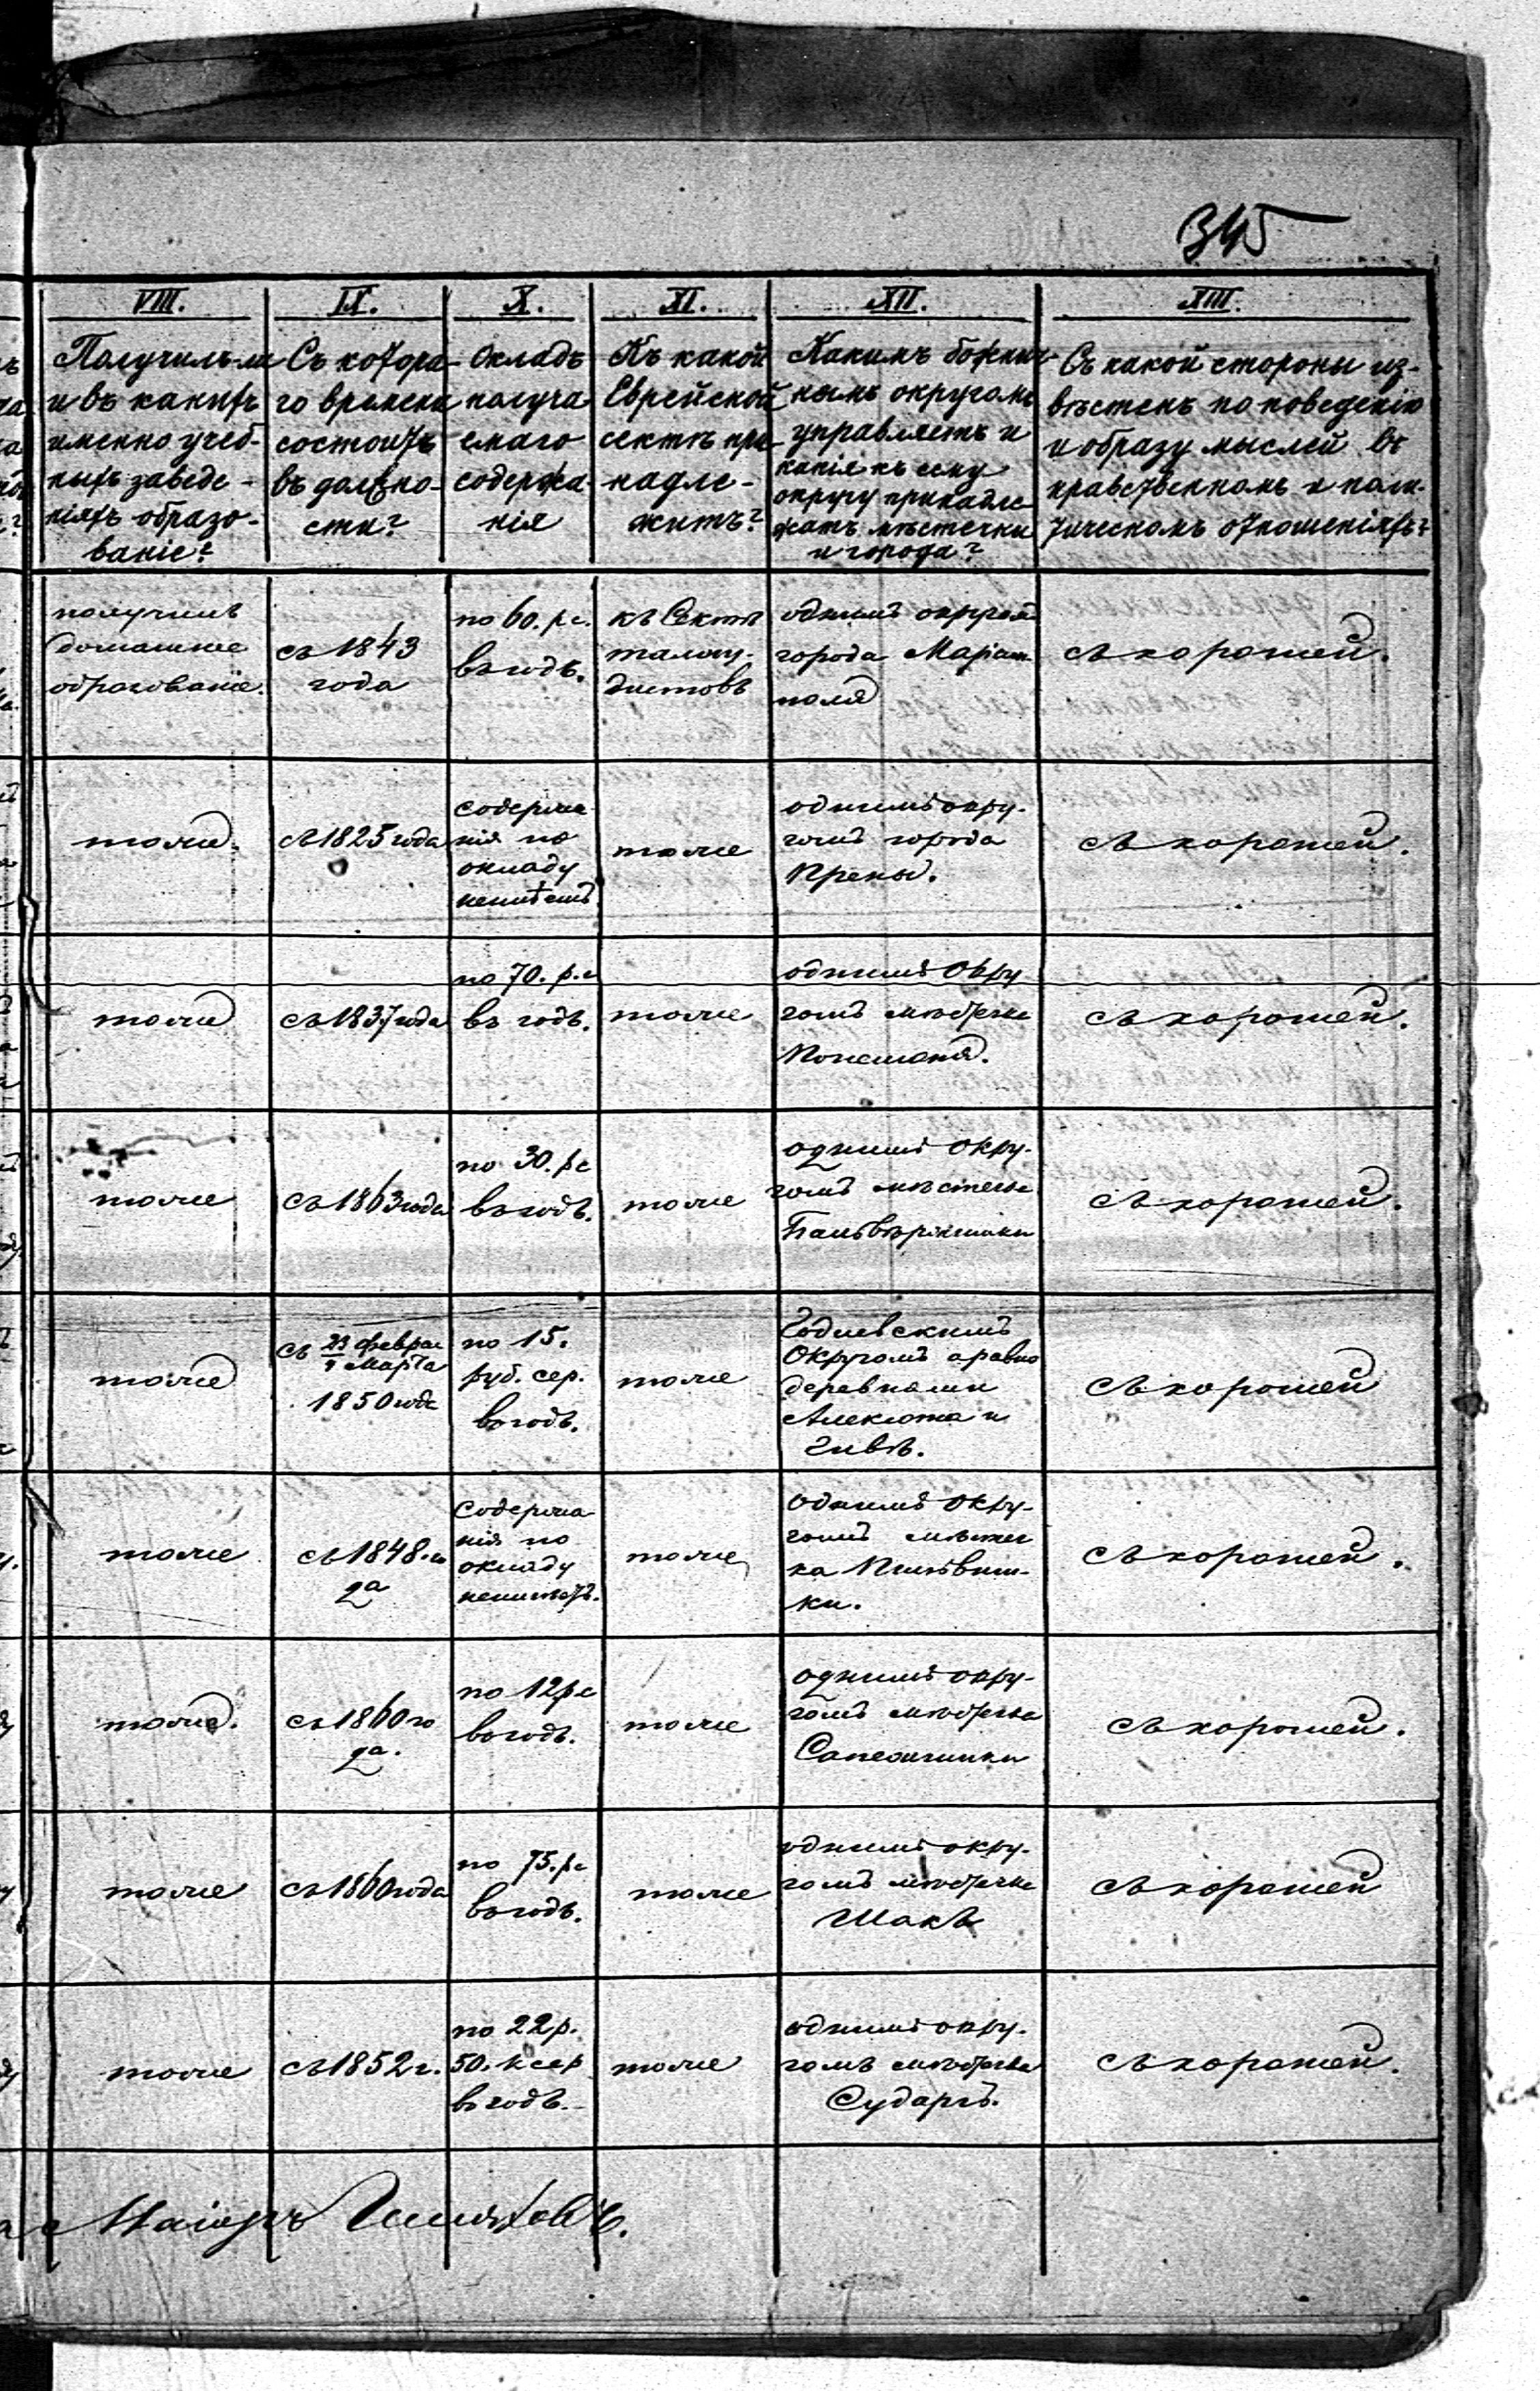 345
VIII.
Получилъ-ли
и въ какихъ
именно учеб-
ныхъ заведе-
ніяхъ образо-
ваніе?
IX.
Съ котора-
го времени
состоитъ
въ должно-
сти?
X.
Окладъ
получа
емаго
содержа-
нія
XI.
Къ какой
Еврейской
сектѣ при-
надле-
житъ?
XII.
Какимъ божнич-
нымъ округомъ
управляетъ и
какія къ сему
округу принадле-
жатъ мѣстечки
и города?
XIII.
Съ какой стороны из-
вѣстенъ по поведенію
и образу мыслей въ
нравственномъ и поли-
тическомъ отношеніяхъ?
получилъ
домашнее
образованіе.
съ 1843
года
по 60. р. с.
въ годъ.
къ Сектѣ
талму-
дистовъ
однимъ округомъ
города Маріам-
поля
съ хорошей.
тоже.
съ 1825 года
содержа-
нія по
окладу
неимѣетъ
тоже
однимъ окру-
гомъ города
Прены.
съ хорошей.
тоже
съ 1837 года
по 70. р. с
въ годъ.
тоже
однимъ Окру-
гомъ мѣстечка
съ хорошей.
тоже
съ 1863 года
по 30. р с
въ годъ.
тоже
однимъ Окру-
гомъ мѣстечка
съ хорошей.
тоже
съ 23 Феврал
Марта
1850 года
по 15.
руб. сер.
въ годъ.
тоже
Годлевскимъ
Округомъ а равно
деревнями
Алексота и
съ хорошей
тоже
съ 1848. го
да
Содержа
нія по
окладу
неимѣетъ.
тоже
однимъ Окру-
гомъ мѣстеч
ка Пильвиш-
ки.
съ хорошей.
тоже.
съ 1860 го
да.
по 12 р с
въ годъ.
тоже
однимъ окру-
гомъ мѣстечка
Сапежишки
съ хорошей.
тоже
съ 1860 года
по 75. р с
въ годъ.
тоже
однимъ окру-
гомъ мѣстечка
Шаки
съ хорошей
тоже
съ 1852 г.
по 22 р.
50. к сер
въ годъ.
тоже
однимъ окру-
гомъ мѣстечка
Сударги.
съ хорошей.
Маіоръ